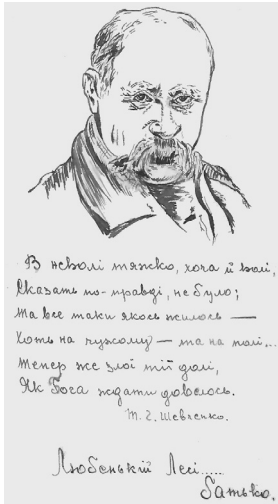 В неволі тяжко, хоча й волі,
Сказать по-правді, не було;
Та все таки якось жилось —
Хоть на чужому — та на полі,..
Тепер же злої тії долі,
Як Бога ждати довелось.
Т. Г. Шевченко.
Любенькій Лесі.....
Батько.